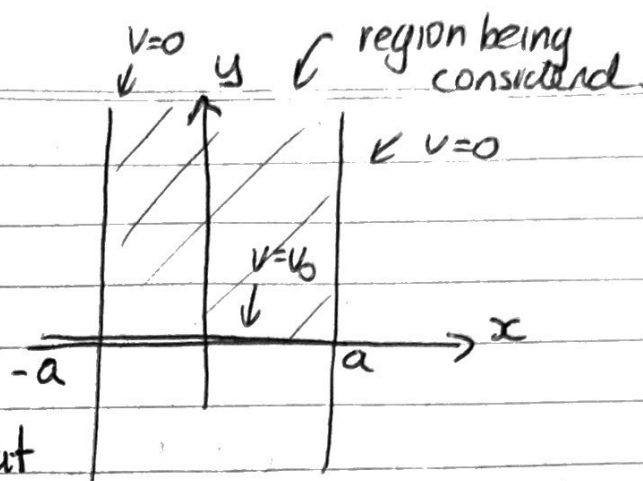 V=0
y
region being
considered
V=0
V=V₀
x
-a
a
ut